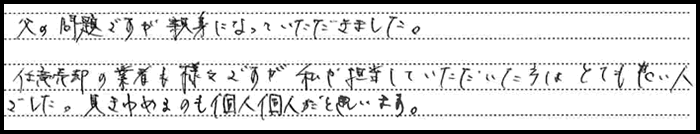 父の問題ですが親身になっていただきました。
任意売却の業者も様々ですが私が担当していただいた方はとても良い人
でした。見きわめるのも個人個人だと思います。